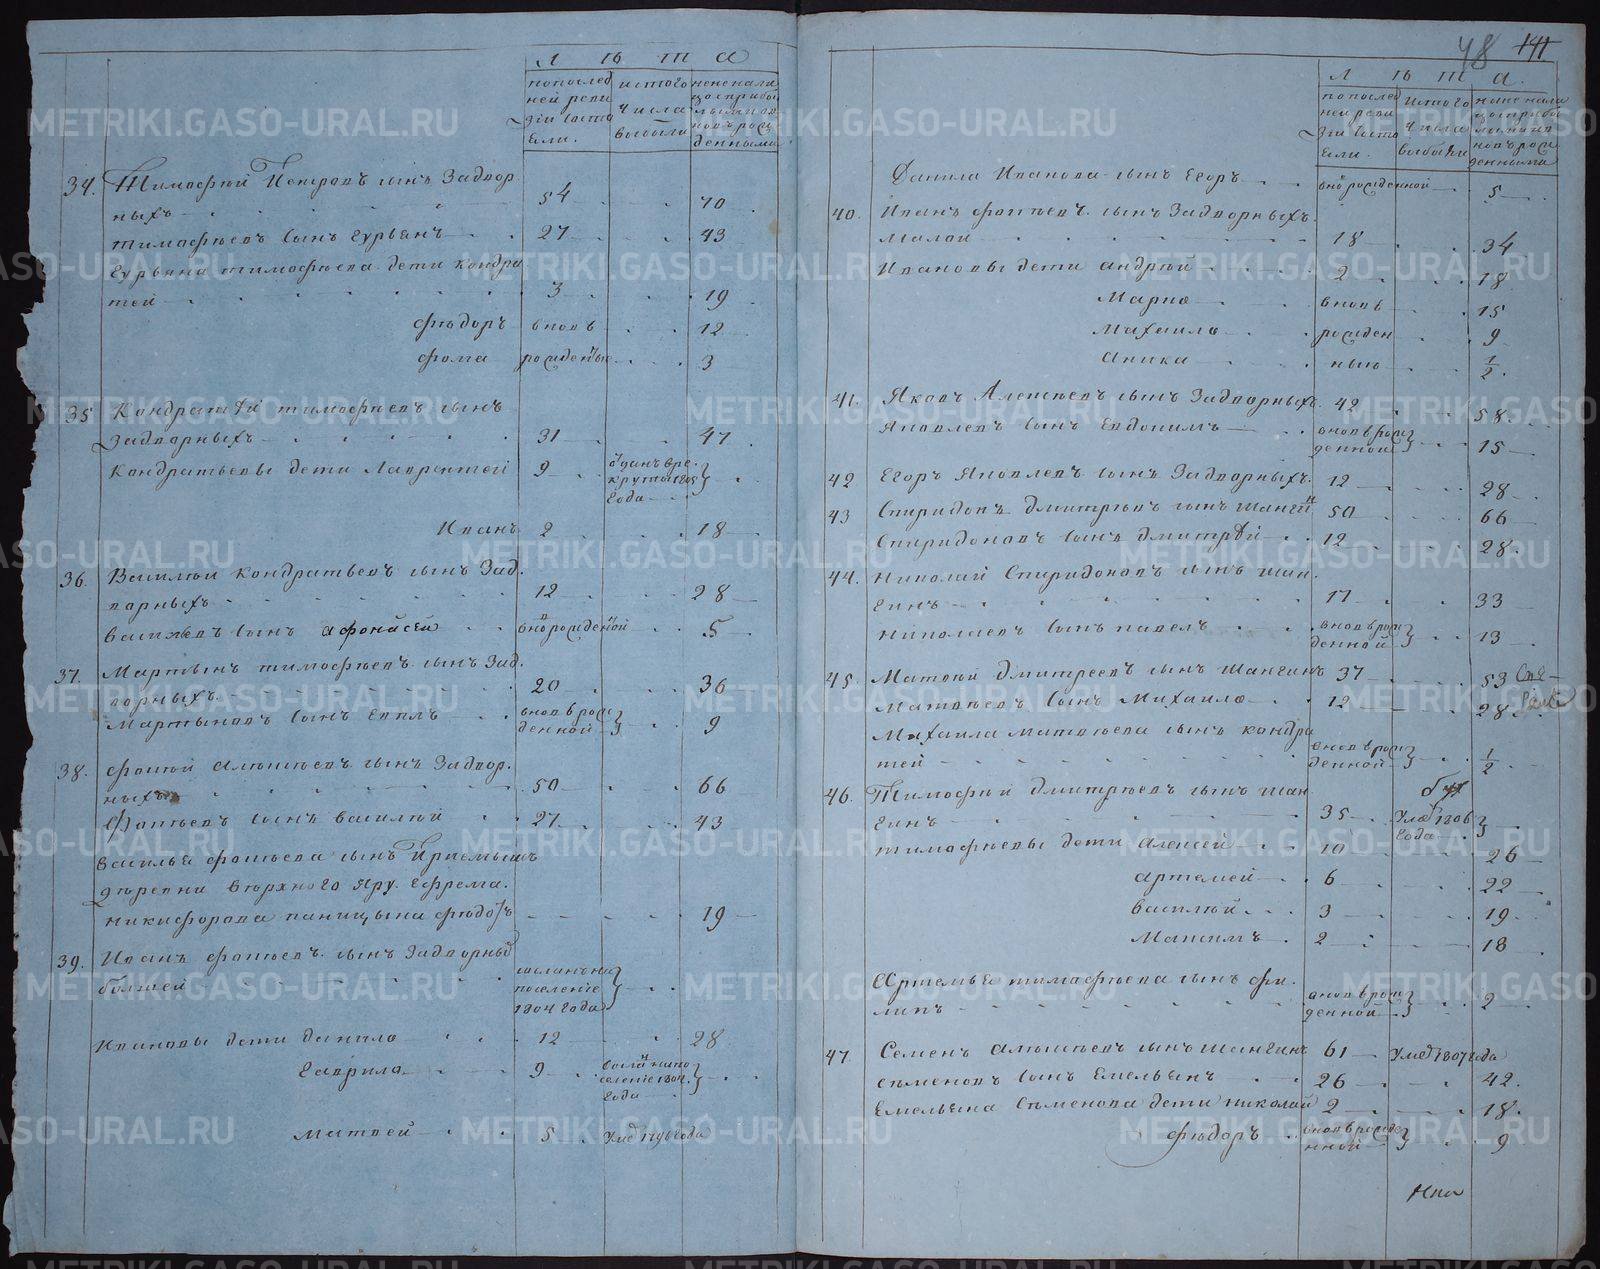 Л ѣ т а
по послед
ней реви
зіи состо
яли.
из того
числа
выбыли
34. Тимофѣй Петровъ сынъ Задвор
ныхъ 54 70
Тимофѣевъ сынъ Гурьянъ 27 43
Гурьяна Тимофѣева дети Кондра
тей 3 19
Фѣдоръ вновь 12
Фома рожденные 3
35 Кондратій Тимофѣевъ сынъ
Задворныхъ 31 47
Кондратьевы дети Лаврентей 9 отданъ в ре
круты 1805
года
Иванъ 2 18
36. Василій Кондратьевъ сынъ Зад
ворныхъ 12 28
Васильевъ сынъ Афонасей внов рожденной 5
37. Мартынъ Тимофѣевъ сынъ Зад
ворныхъ 20 36
Мартыновъ сынъ внов рож
денной 9
38. Фотій Алексѣевъ сынъ Задвор
ныхъ 50 66
Фотѣевъ сынъ Василій 27 43
Василья Фотѣева сынъ Пріемышъ
деревни Верхнего Яру. Ефрема
Никифорова Паницына Фѣдотъ 19
39. Иванъ Фотѣевъ сынъ Задворный
болшей сосланъ на
поселеніе
1804 года
Ивановы дети Данило 12 28
Гаврила 9 сосланъ на по
селеніе 1804
года
Матвей 5 умеръ 1796 года
48 141
Л ѣ т а
по послед
ней реви
зіи состо
яли.
из того
числа
выбыли
Данила Иванова сынъ Егоръ внов рожденной 5
40. Иванъ Фотѣевъ сынъ Задворныхъ
Малой 18 34
Ивановы дети Андрѣй 2 18
Марко вновь 15
Михаило рожден 9
Аника ные 1/2
41. Яковъ Алексѣевъ сынъ Задворныхъ 42 58
Яковлевъ сынъ Евдокимъ внов рож
денной 15
42 Егоръ Яковлевъ сынъ Задворныхъ 12 28
43 Спиридонъ Дмитрѣевъ сынъ Шангин 50 66
Спиридоновъ сынъ Дмитрѣй 12 28.
44. Николай Спиридоновъ сынъ Шан
гинъ 17 33
Николаевъ сынъ Павелъ внов рож
денной 13
45. Матвѣй Дмитреевъ сынъ Шангинъ 37 53
Матвѣевъ сынъ Михаило 12 28
Михаила Матвѣева сынъ Кондра
тей внов рож
денной 1/2
46. Тимофѣй Дмитрѣевъ сынъ Шан
гинъ 35 умеръ 1806
года
Тимофѣевы дети Алексей 10 26
Артемей 6 22
Василѣй 3 19
Максимъ 2 18
Артемья Тимофѣева сынъ Фи
липъ внов рож
денной 2
47. Семенъ Алексѣевъ сынъ Шангинъ 61 умеръ 1807 года
Сѣменовъ сынъ Емельянъ 26 42.
Емельяна Сѣменова дети Николай 2 18.
Фѣдоръ внов рожде
нной 9